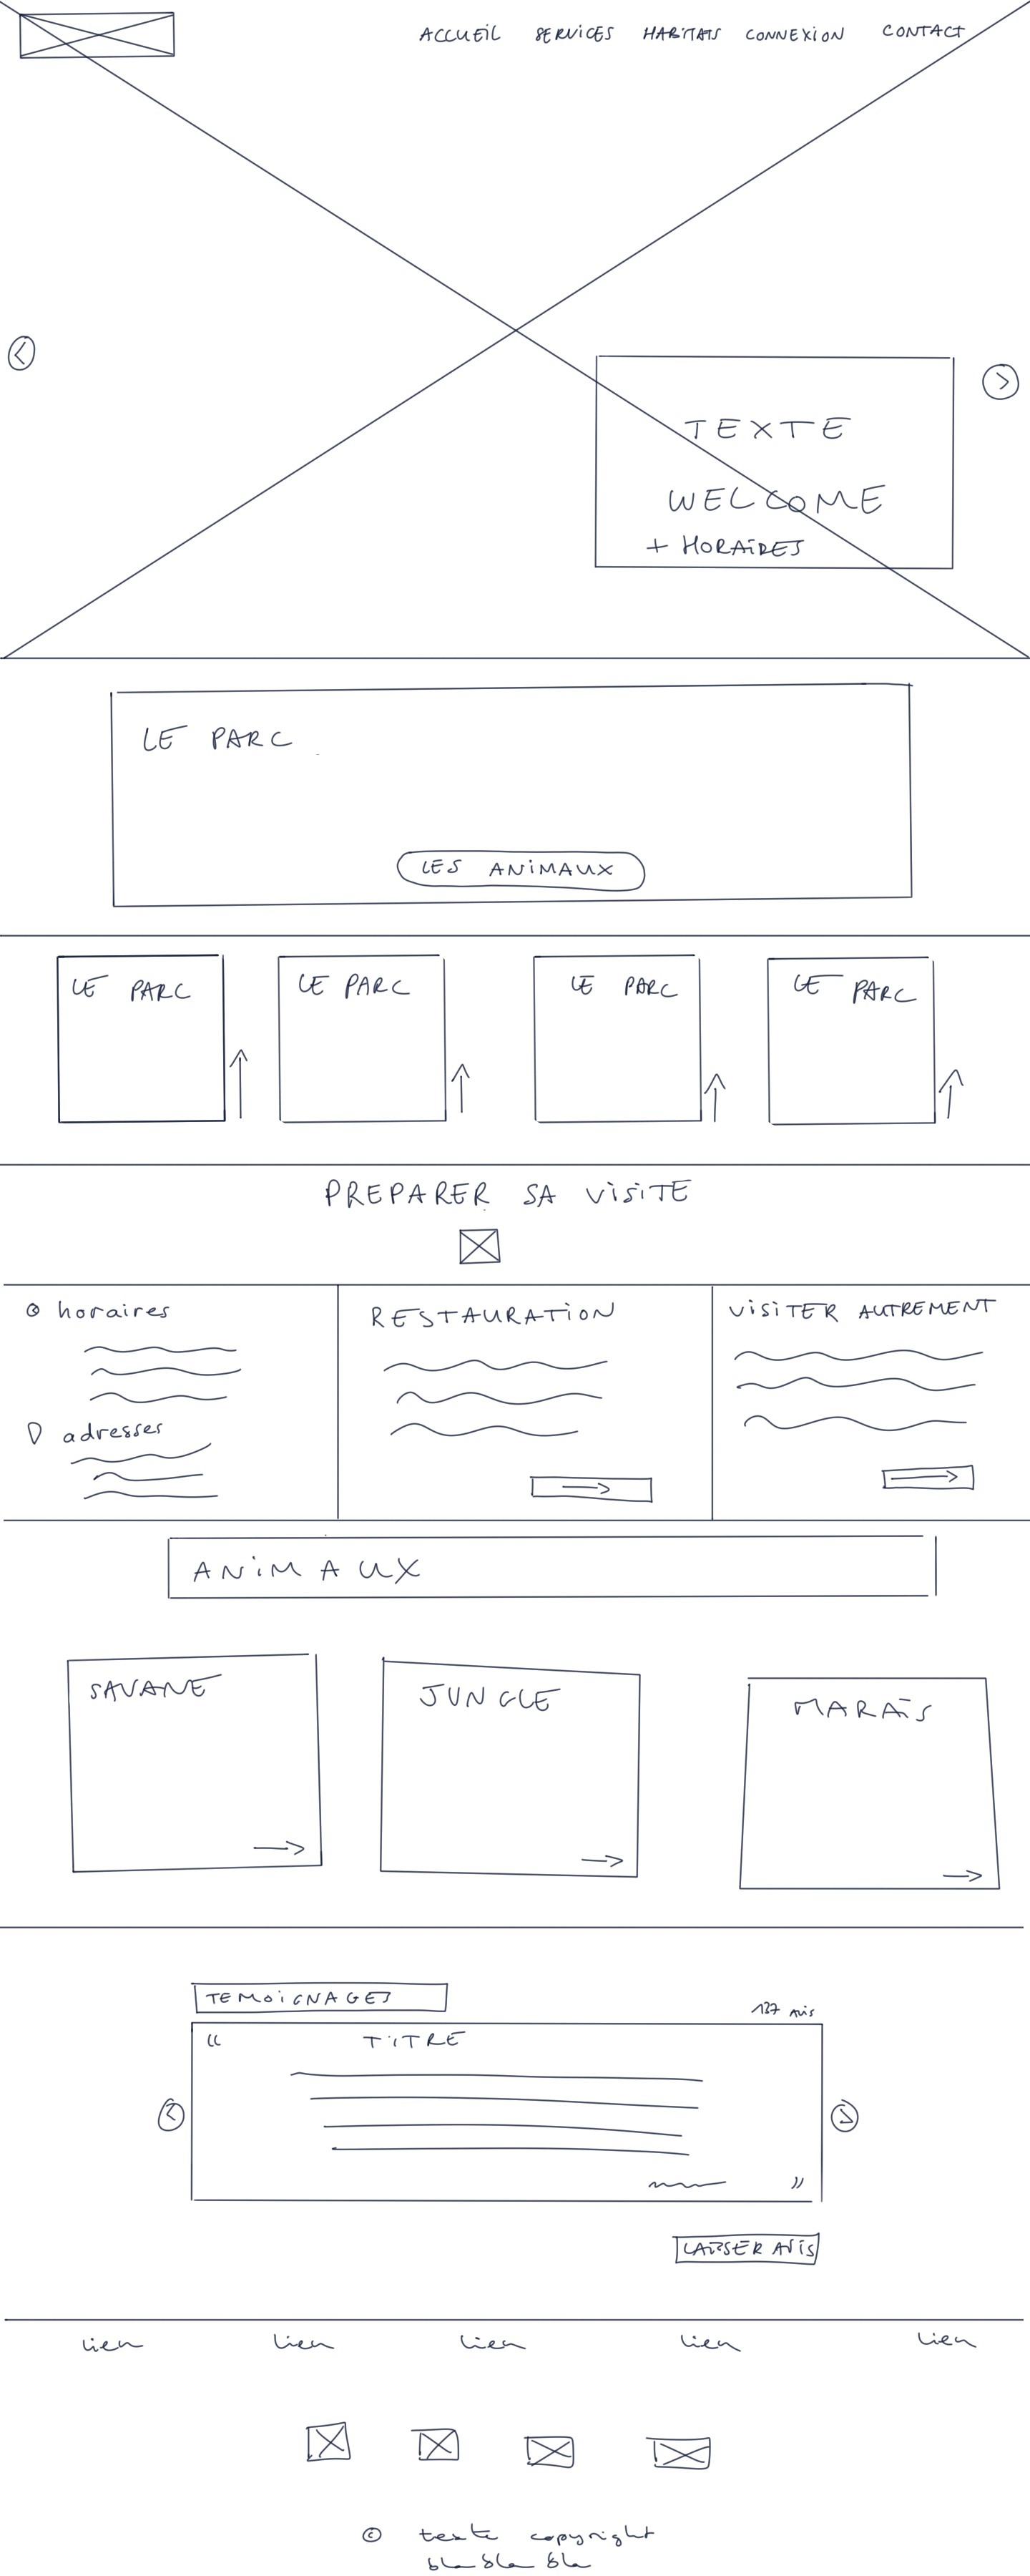 ACCUEIL SERVICES HABITATS CONNEXION CONTACT
TEXTE
WELCOME
+ HORAIRES
LE PARC
LES ANIMAUX
LE PARC LE PARC LE PARC LE PARC
PREPARER SA VISITE
horaires
adresses
RESTAURATION
VISITER AUTREMENT
ANIMAUX
SAVANE JUNGLE MARAIS
TEMOIGNAGES
137 AVIS
“ TITRE
”
LAISSER AVIS
lien lien lien lien lien
© texte copyright
bla bla bla